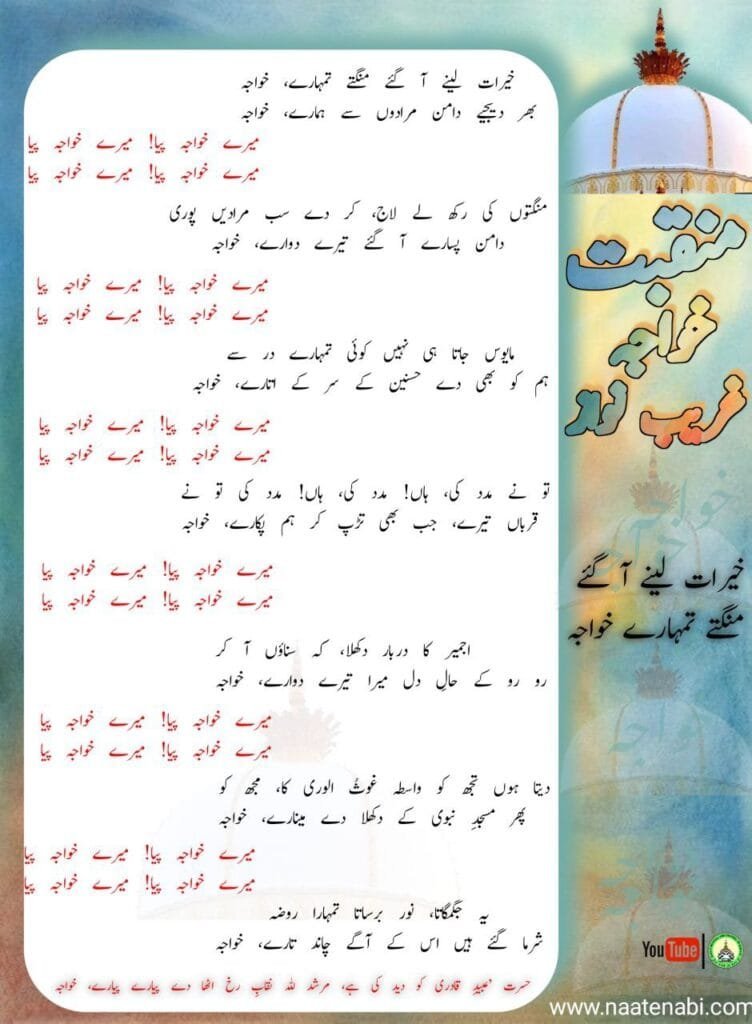 خیرات لینے آ گئے منگتے تمہارے، خواجہ
بھر دیجیے دامن مرادوں سے ہمارے، خواجہ
میرے خواجہ پیا! میرے خواجہ پیا
میرے خواجہ پیا! میرے خواجہ پیا
منگتوں کی رکھ لے لاج، کر دے سب مرادیں پوری
دامن پسارے آ گئے تیرے دوارے، خواجہ
میرے خواجہ پیا! میرے خواجہ پیا
میرے خواجہ پیا! میرے خواجہ پیا
مایوس جاتا ہی نہیں کوئی تمہارے در سے
ہم کو بھی دے حسنین کے سر کے اتارے، خواجہ
میرے خواجہ پیا! میرے خواجہ پیا
میرے خواجہ پیا! میرے خواجہ پیا
تو نے مدد کی، ہاں! مدد کی، ہاں! مدد کی تو نے
قرباں تیرے، جب بھی تڑپ کر ہم پکارے، خواجہ
میرے خواجہ پیا! میرے خواجہ پیا
میرے خواجہ پیا! میرے خواجہ پیا
اجمیر کا دربار دکھلا، کہ سناؤں آ کر
رو رو کے حالِ دل میرا تیرے دوارے، خواجہ
میرے خواجہ پیا! میرے خواجہ پیا
میرے خواجہ پیا! میرے خواجہ پیا
دیتا ہوں تجھ کو واسطہ غوثُ الوری کا، مجھ کو
پھر مسجدِ نبوی کے دکھلا دے مینارے، خواجہ
میرے خواجہ پیا! میرے خواجہ پیا
میرے خواجہ پیا! میرے خواجہ پیا
یہ جگمگاتا، نور برساتا تمہارا روضہ
شرما گئے ہیں اس کے آگے چاند تارے، خواجہ
حسرت عبیدِ قادری کو دید کی ہے، مرشد للہ نقابِ رخ اٹھا دے پیارے پیارے، خواجہ
منقبت
خواجہ
غریب نواز
خواجہ
خیرات لینے آ گئے
منگتے تمہارے خواجہ
خواجہ
YouTube
www.naatenabi.com